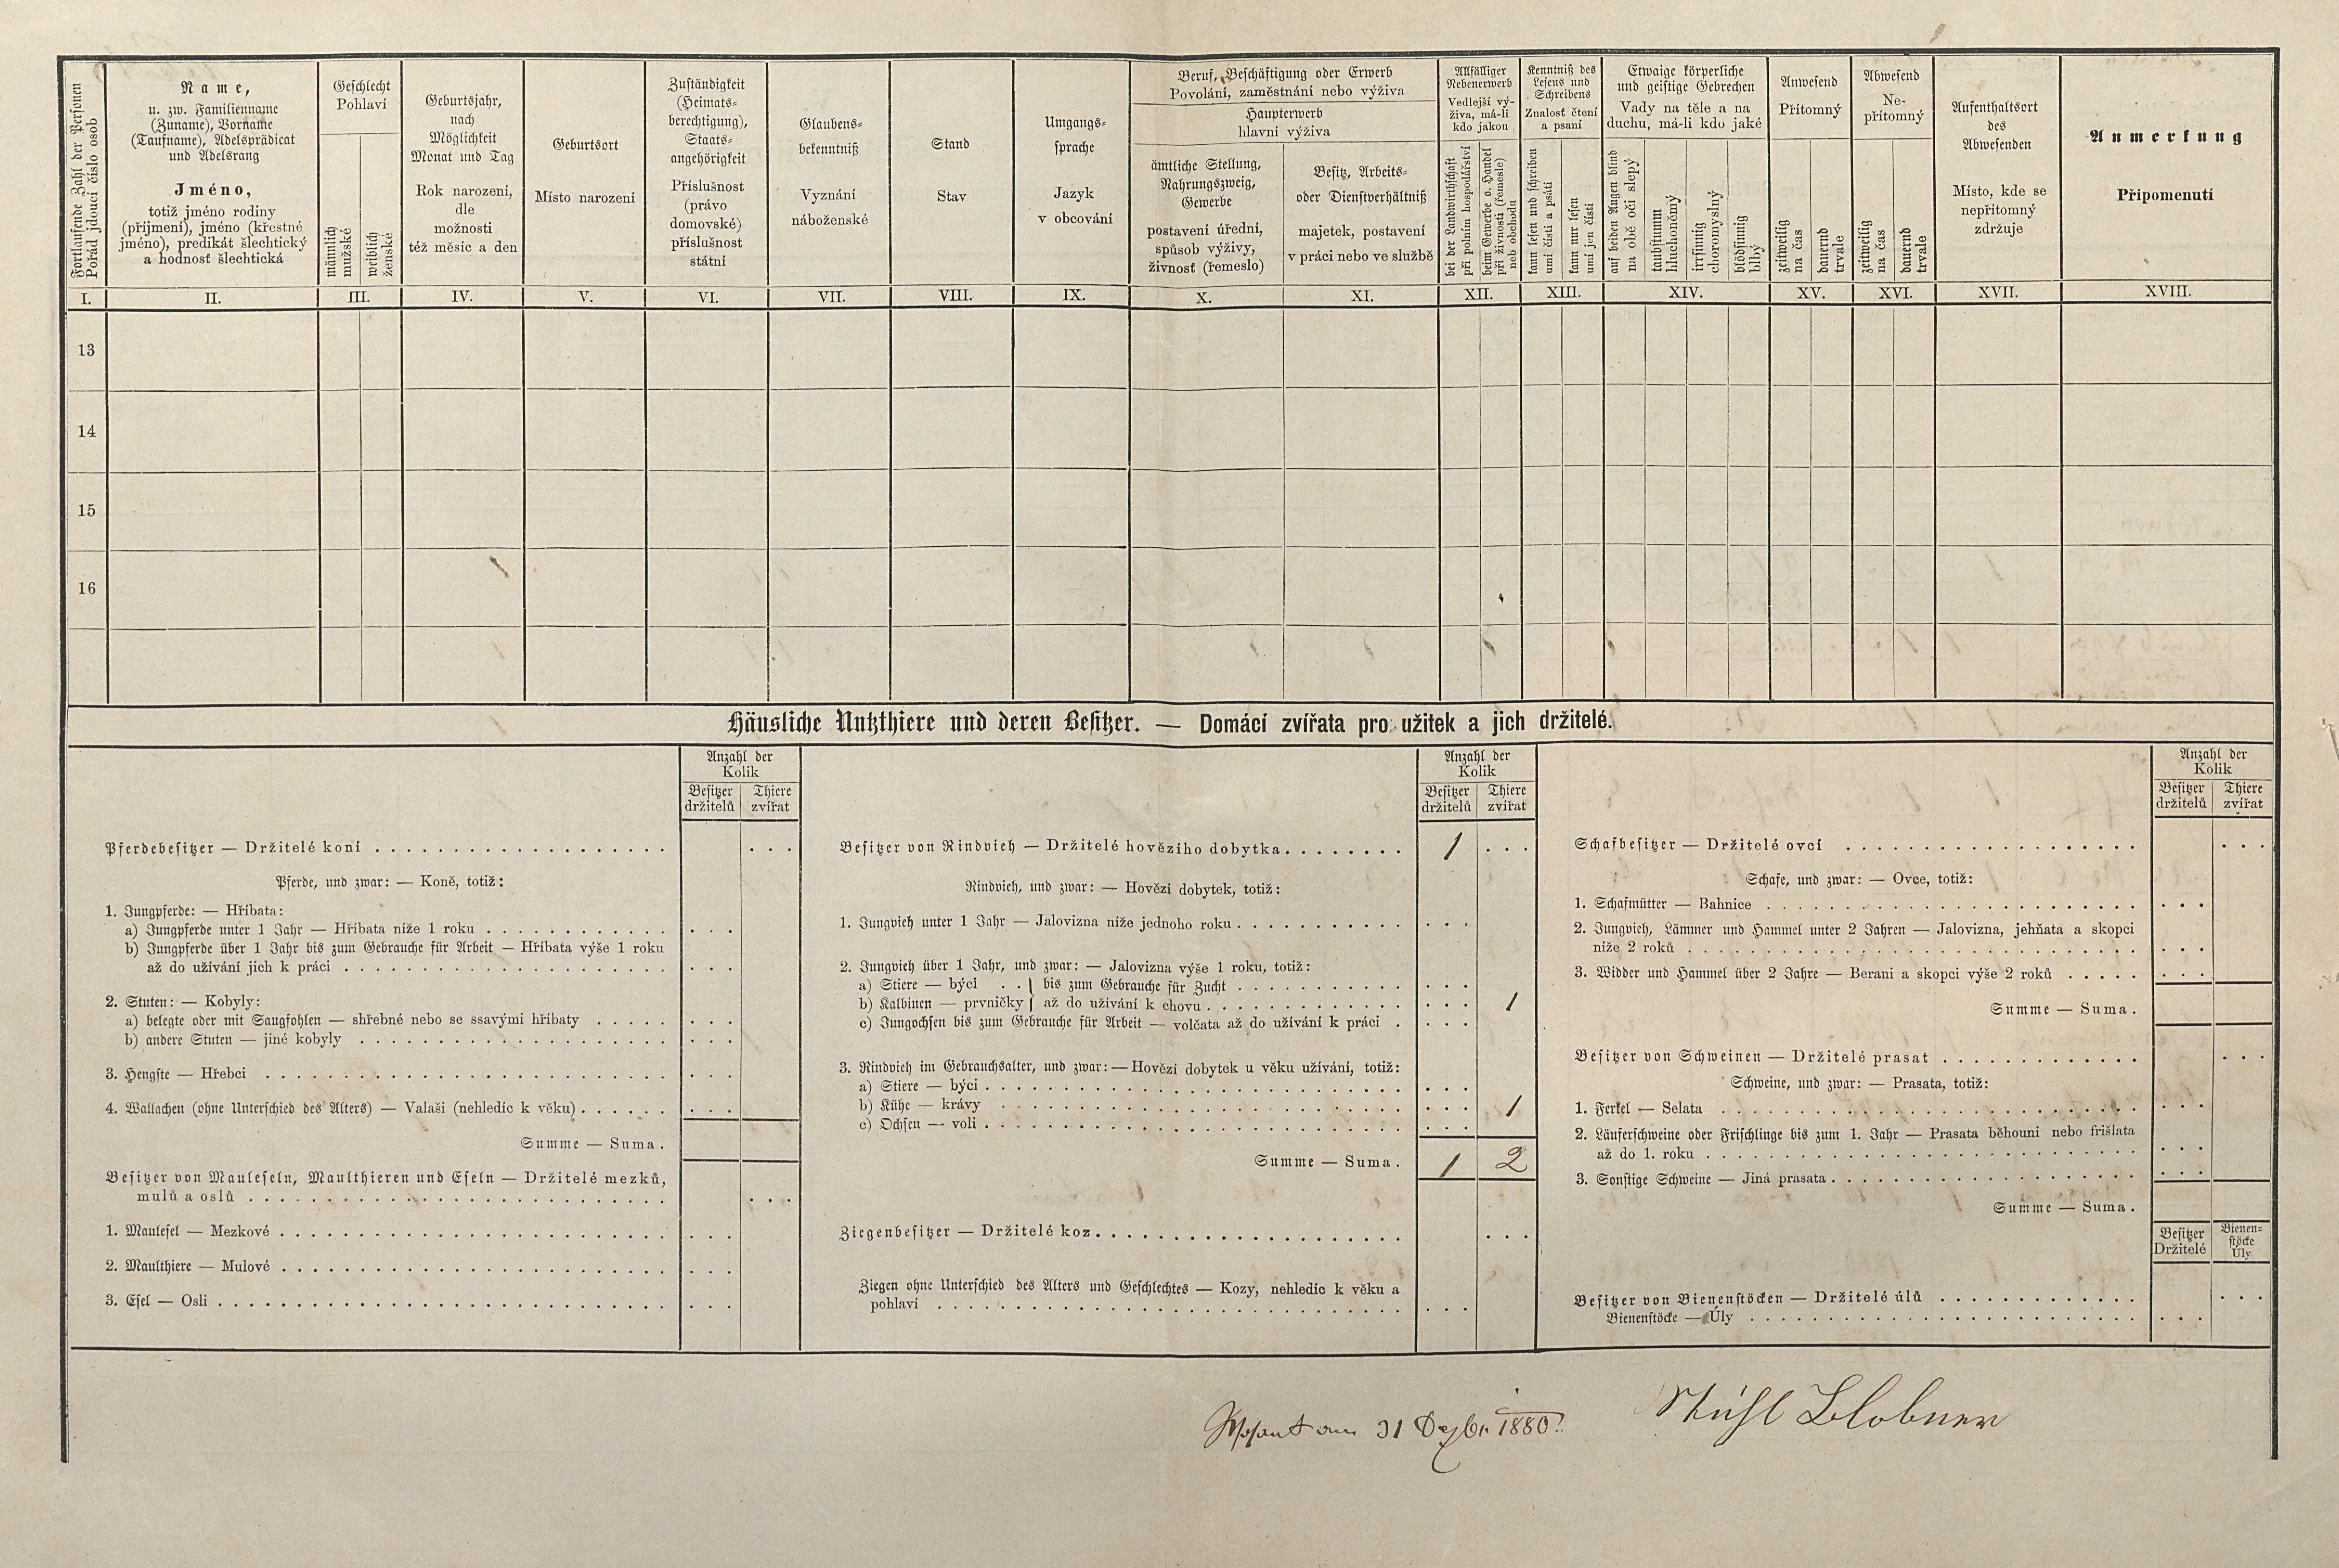 Fortlaufende Zahl der Personen
Pořád jdoucí číslo osob
Name,
u. zw. Familienname
(Zuname), Vorname
(Taufname), Adelsprädicat
und Adelsrang
Jméno,
totiž jméno rodiny
(příjmení), jméno (křestné
jméno), predikát šlechtický
a hodnosť šlechtická
Geschlecht
Pohlaví
männlich
mužské
weiblich
ženské
Geburtsjahr,
nach
Möglichkeit
Monat und Tag
Rok narození,
dle
možnosti
též měsíc a den
Geburtsort
Místo narození
Zuständigkeit
(Heimats-
berechtigung),
Staats-
angehörigkeit
Příslušnost
(právo
domovské)
příslušnost
státní
Glaubens-
bekenntniß
Vyznání
náboženské
Stand
Stav
Umgangs-
sprache
Jazyk
v obcování
Beruf, Beschäftigung oder Erwerb
Povolání, zaměstnání nebo výživa
Haupterwerb
hlavní výživa
ämtliche Stellung,
Nahrungszweig,
Gewerbe
postavení úřední,
spůsob výživy,
živnosť (řemeslo)
Besitz, Arbeits-
oder Dienstverhältniß
majetek, postavení
v práci nebo ve službě
Allfälliger
Nebenerwerb
Vedlejší vý-
živa, má-li
kdo jakou
bei der Landwirthschaft
při polním hospodářství
beim Gewerbe o. Handel
při živnosti (řemesle)
neb obchodu
Kenntniß des
Lesens und
Schreibens
Znalosť čtení
a psaní
kann lesen und schreiben
umí čísti a psáti
kann nur lesen
umí jen čísti
Etwaige körperliche
und geistige Gebrechen
Vady na těle a na
duchu, má-li kdo jaké
auf beiden Augen blind
na obě oči slepý
taubstumm
hluchoněmý
irrsinnig
choromyslný
blödsinnig
blbý
Anwesend
Přítomný
zeitweilig
na čas
dauernd
trvale
Abwesend
Ne-
přítomný
zeitweilig
na čas
dauernd
trvale
Aufenthaltsort
des
Abwesenden
Místo, kde se
nepřítomný
zdržuje
Anmerkung
Připomenutí
I. II. III. IV. V. VI. VII. VIII. IX. X. XI. XII. XIII. XIV. XV. XVI. XVII. XVIII.
13
14
15
16
Häusliche Nutzthiere und deren Besitzer. — Domácí zvířata pro užitek a jich držitelé.
Anzahl der
Kolik
Besitzer Thiere
držitelů zvířat
Pferdebesitzer — Držitelé koní
Pferde, und zwar: — Koně, totiž:
1. Jungpferde: — Hříbata:
a) Jungpferde unter 1 Jahr — Hříbata níže 1 roku
b) Jungpferde über 1 Jahr bis zum Gebrauche für Arbeit — Hříbata výše 1 roku
až do užívání jich k práci
2. Stuten: — Kobyly:
a) belegte oder mit Saugfohlen — shřebné nebo se ssavými hříbaty
b) andere Stuten — jiné kobyly
3. Hengste — Hřebci
4. Wallachen (ohne Unterschied des Alters) — Valaši (nehledíc k věku)
Summe — Suma.
Besitzer von Mauleseln, Maulthieren und Eseln — Držitelé mezků,
mulů a oslů
1. Maulesel — Mezkové
2. Maulthiere — Mulové
3. Esel — Osli
Anzahl der
Kolik
Besitzer Thiere
držitelů zvířat
Besitzer von Rindvieh — Držitelé hovězího dobytka 1
Rindvieh, und zwar: — Hovězí dobytek, totiž:
1. Jungvieh unter 1 Jahr — Jalovizna níže jednoho roku
2. Jungvieh über 1 Jahr, und zwar: — Jalovizna výše 1 roku, totiž:
a) Stiere — býci . . } bis zum Gebrauche für Zucht
b) Kalbinen — prvničky } až do užívání k chovu 1
c) Jungochsen bis zum Gebrauche für Arbeit — volčata až do užívání k práci
3. Rindvieh im Gebrauchsalter, und zwar: — Hovězí dobytek u věku užívání, totiž:
a) Stiere — býci
b) Kühe — krávy 1
c) Ochsen — voli
Summe — Suma. 1 2
Ziegenbesitzer — Držitelé koz
Ziegen ohne Unterschied des Alters und Geschlechtes — Kozy, nehledíc k věku a
pohlaví
Anzahl der
Kolik
Besitzer Thiere
držitelů zvířat
Schafbesitzer — Držitelé ovcí
Schafe, und zwar: — Ovce, totiž:
1. Schafmütter — Bahnice
2. Jungvieh, Lämmer und Hammel unter 2 Jahren — Jalovizna, jehňata a skopci
níže 2 roků
3. Widder und Hammel über 2 Jahre — Berani a skopci výše 2 roků
Summe — Suma.
Besitzer von Schweinen — Držitelé prasat
Schweine, und zwar: — Prasata, totiž:
1. Ferkel — Selata
2. Läuferschweine oder Frischlinge bis zum 1. Jahr — Prasata běhouni nebo frišlata
až do 1. roku
3. Sonstige Schweine — Jiná prasata
Summe — Suma.
Besitzer Bienen-
Držitelé stöcke
Úly
Besitzer von Bienenstöcken — Držitelé úlů
Bienenstöcke — Úly
am 31 Dezbr 1880
Blobner